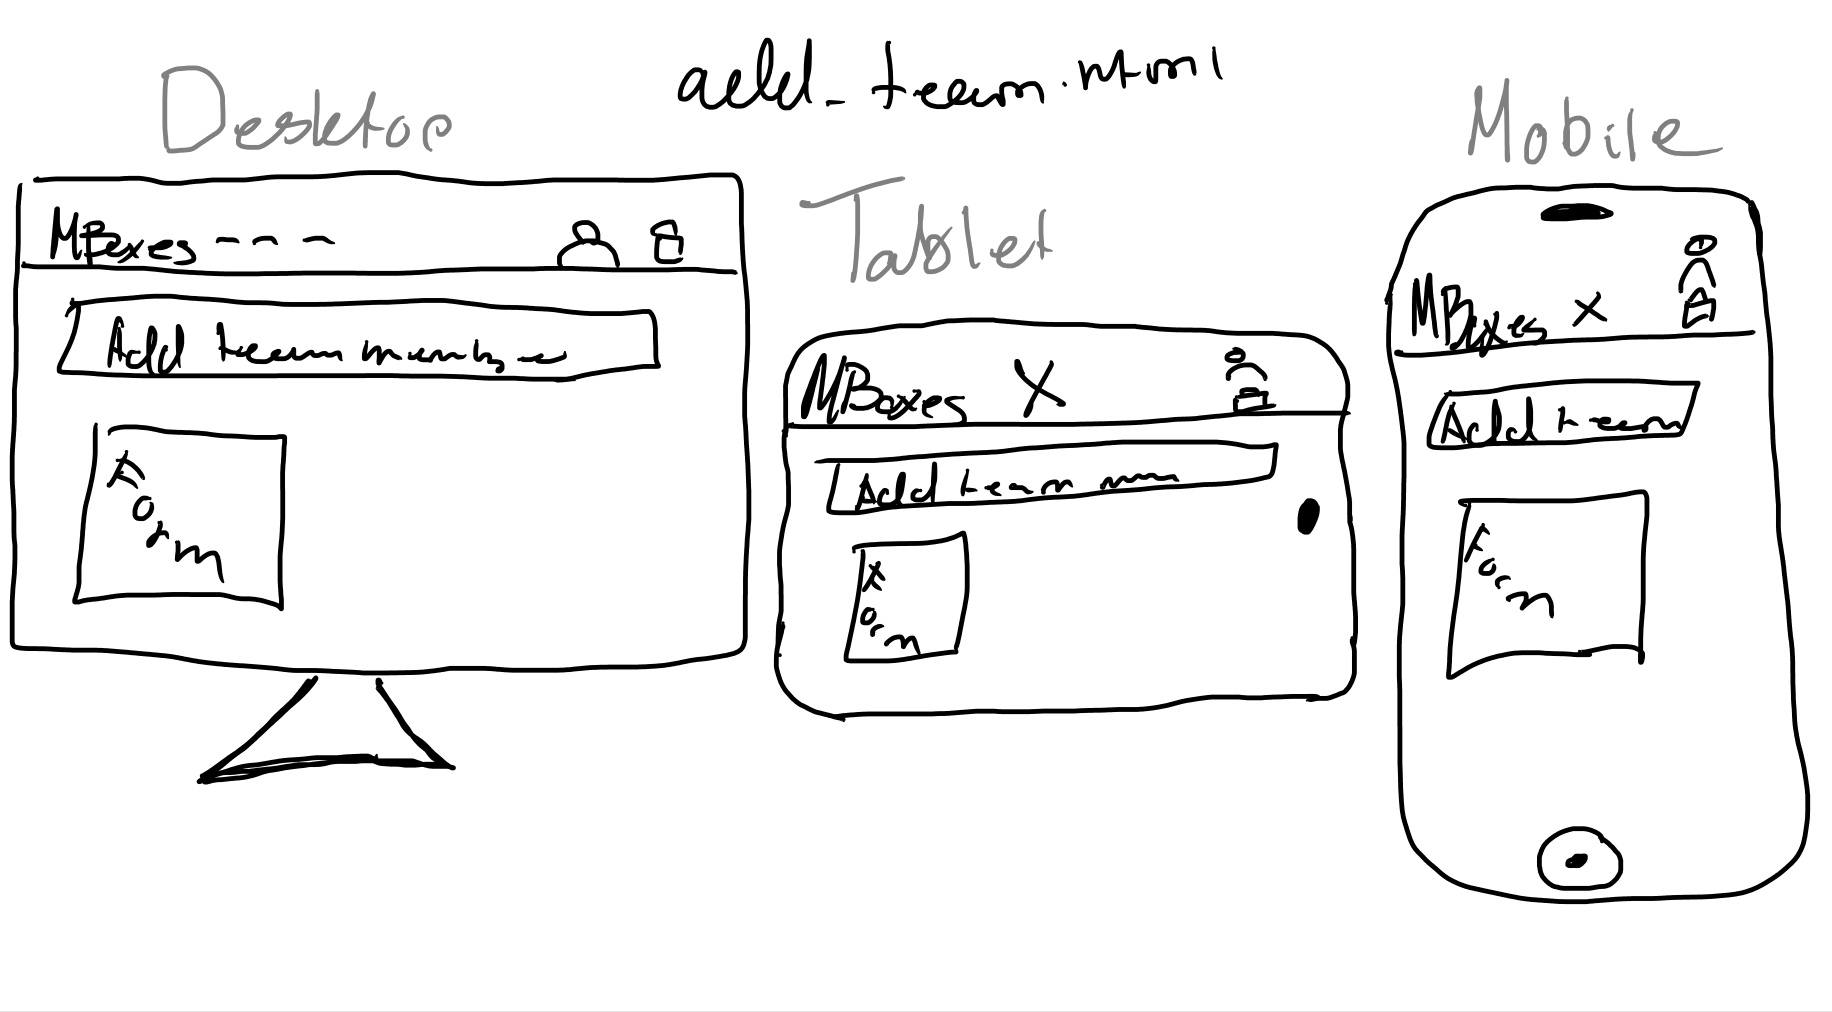 add_team.html
Desktop
MBoxes - - -
Add team membe
Form
Tablet
MBoxes X
Add team
Form
Mobile
MBoxes X
Add team
Form